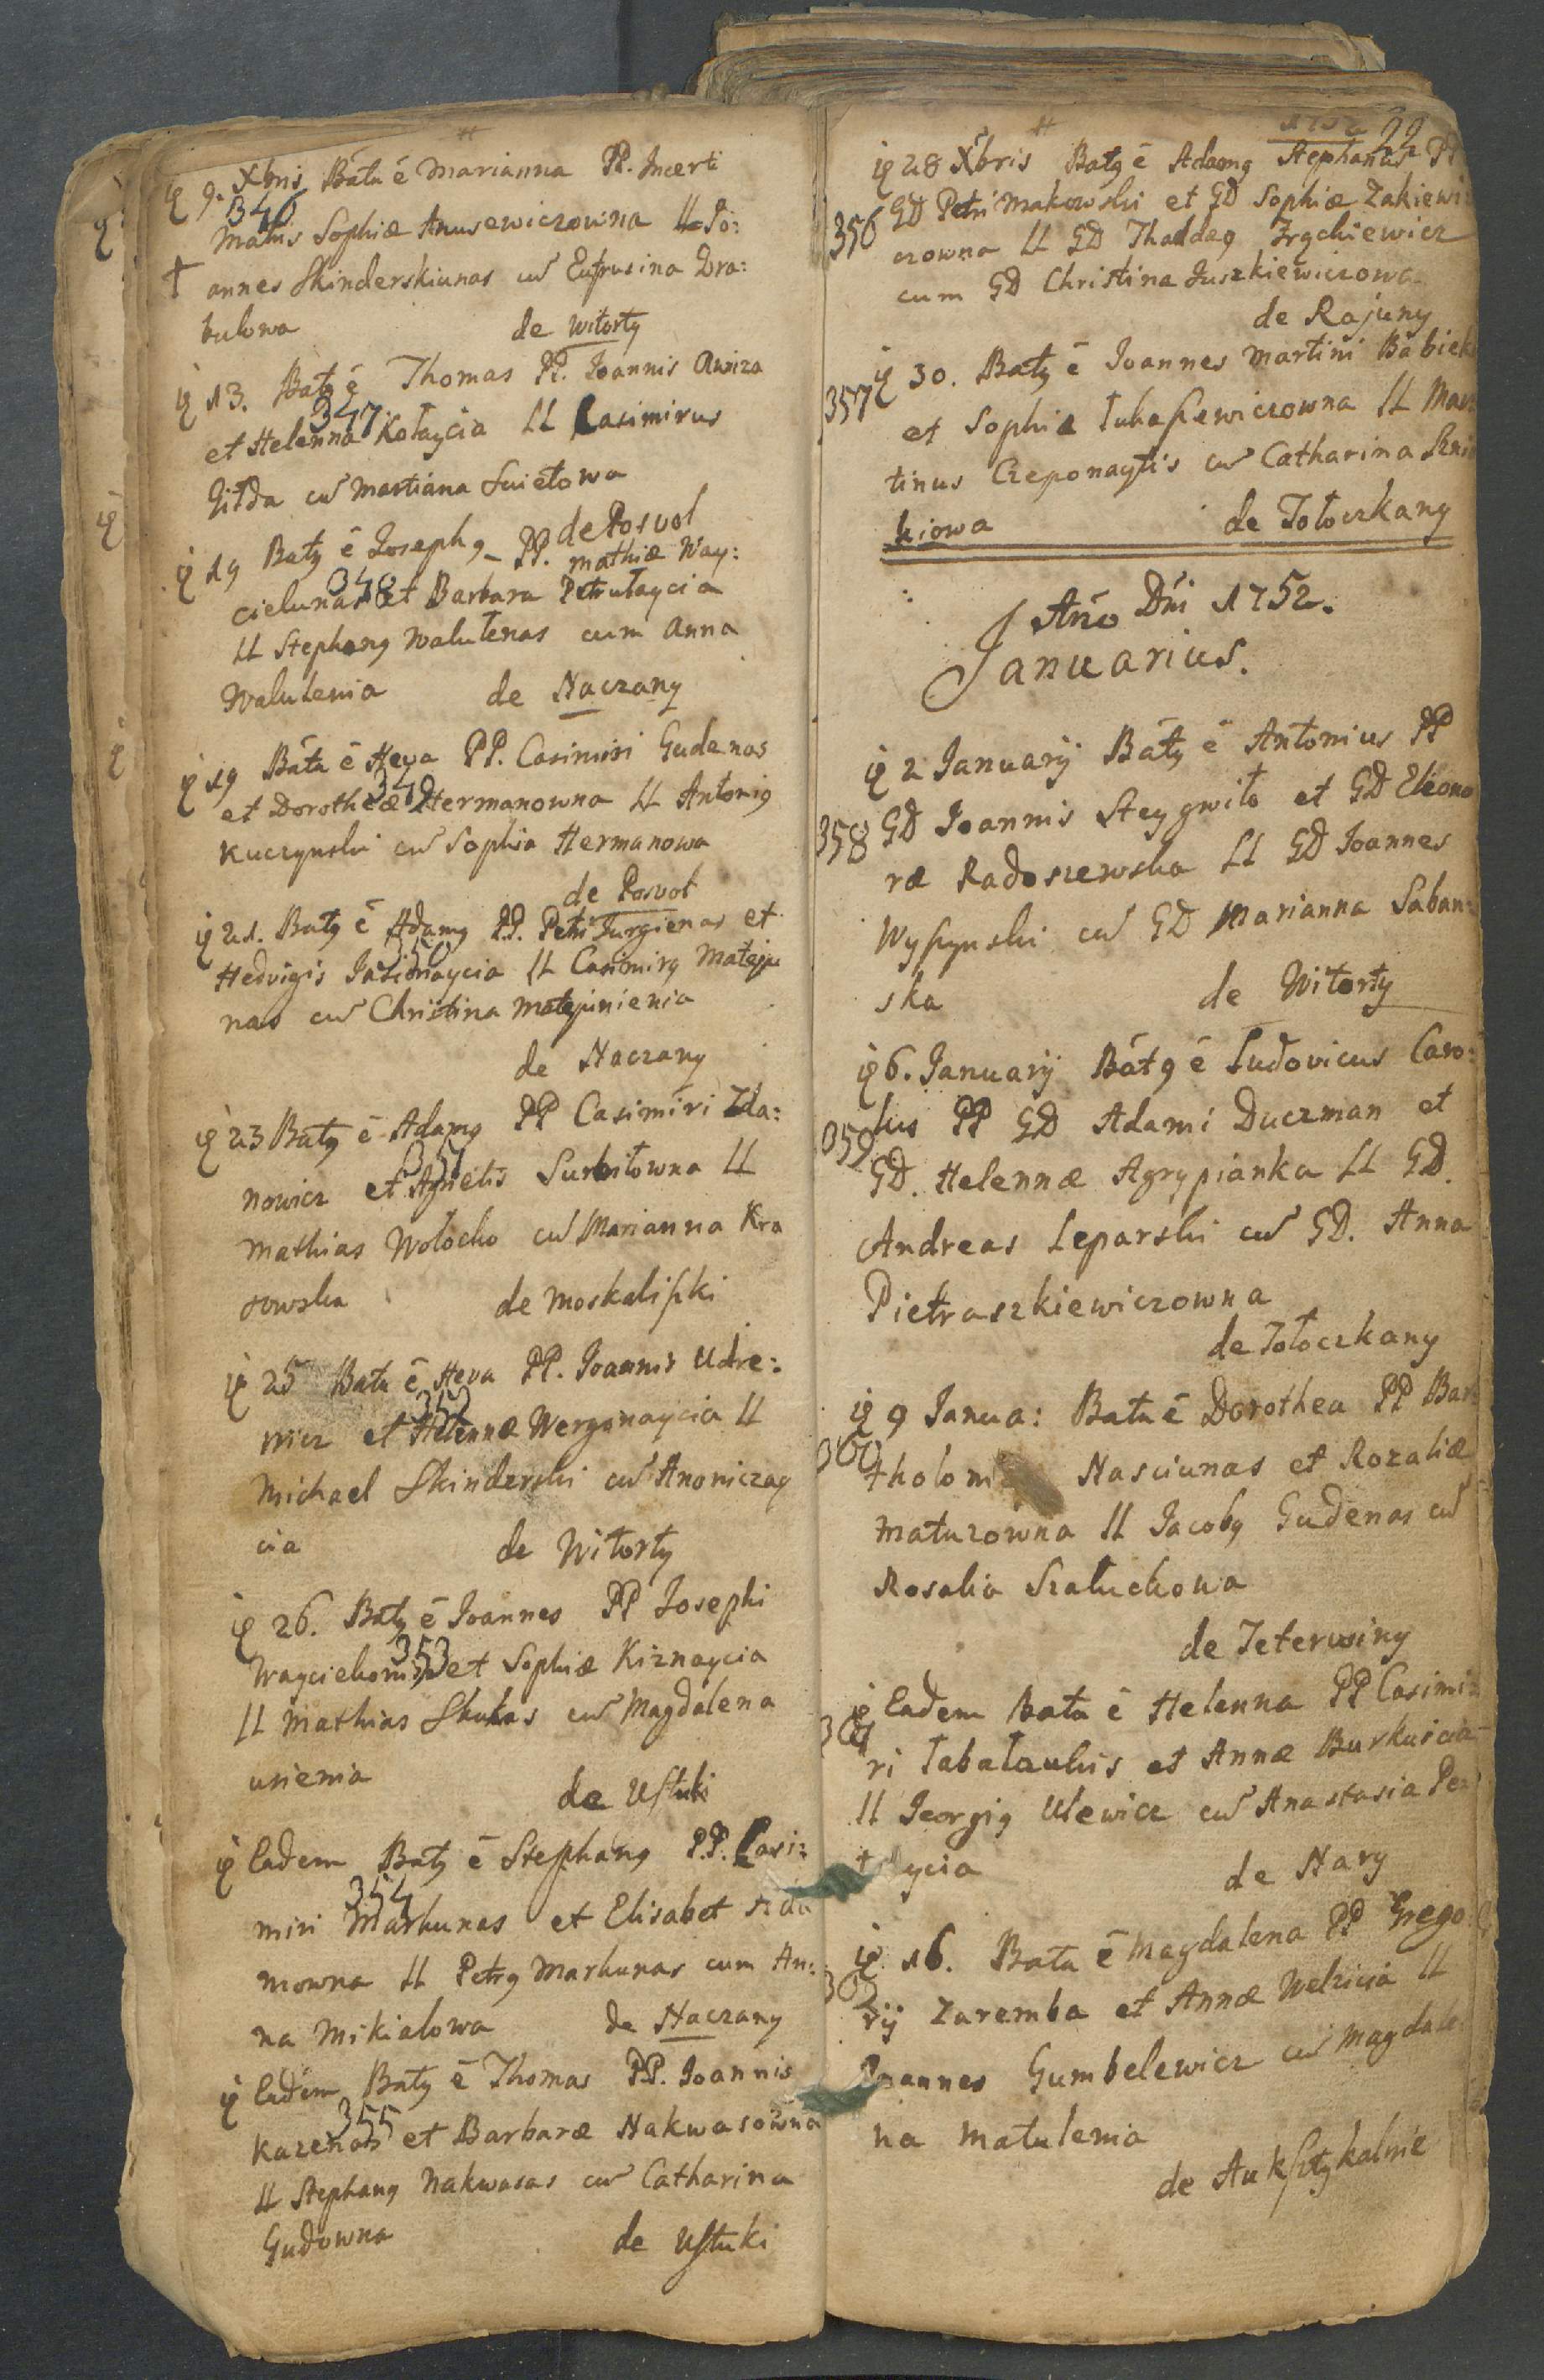 9. Xbris Bata ē Marianna PP. Incerti
346
Matris Sophiæ Anusewiczowna LL Jo:
† annes Skinderskiunas cū Eufrusina Dra:
bulowa de Witorty
13. Batꝯ ē Thomas PP. Joannis Awiza
347
et Helenna Kołaycia LL Casimirus
Gitda cū Martiana Suietowa
de Posvol
19 Batꝯ ē Josephꝯ PP. Mathiæ Way:
348
cielunas et Barbara Petrułaycia
LL Stephanꝯ Walutenas cum Anna
Walutenia de Naczany
19 Bata ē Heva PP. Casimiri Gudenas
349
et Dorotheæ Hermanowna LL Antoniꝯ
Kuczynski cū Sophia Hermanowa
de Posvol
21. Batꝯ ē Adamꝯ PP. Petri Jurgienas et
350
Hedvigis Jasiunaycia LL Casimirꝯ Mateju
nas cū Christina Matejunienia
de Naczany
23 Batꝯ ē Adamꝯ PP Casimiri Zda:
351
nowicz et Agnetis Surbitowna LL
Mathias Wołocko cū Marianna Kra
sowska de Moskaliszki
25 Bata ē Heva PP. Joannis Udre:
352
wicz et Helennæ Wergonaycia LL
Michael Skinderski cū Anoniczay
cia de Witorty
26. Batꝯ ē Joannes PP Josephi
353
Wayciekonis et Sophiæ Kirnaycia
LL Mathias Skukas cū Magdalena
unienia de Ustuki
Eadem Batꝯ ē Stephanꝯ P.P. Casi:
354
miri Markunas et Elisabet
mowna LL Petrꝯ Markunas cum An:
na Mikialowa de Naczany
Eadem Batꝯ ē Thomas PP. Joannis
355
Kazenas et Barbaræ Nakwasowna
LL Stephanꝯ Nakwasas cū Catharina
Gudowna de Ustuki
1752 99
28 Xbris Batꝯ ē Adamꝯ Stephanus PP
GD Petri Makowski et GD Sophiæ Zakiewi
356
czowna LL GD Thaddeꝯ Frąckiewicz
cum GD Christina Juszkiewiczowa
de Rajuny
30. Batꝯ ē Joannes Martini Babick
357
et Sophia Łukaszewiczowna LL Mar:
tinus Czeponaytis cū Catharina
kiowa de Tołoczkany
Año Dñi 1752.
Januarius.
2 Januarij Batꝯ ē Antonius PP
358 GD Joannis Steygwiło et GD Eleono
ræ Radoszewska LL GD Joannes
Wyszynski cū GD Marianna Saban:
ska de Witorty
6. Januarij Batꝯ ē Ludovicus Caro:
lus PP GD Adami Duczman et
359
GD. Helennæ Agrypianka LL GD.
Andreas Leparski cū GD. Anna
Pietraszkiewiczowna
de Tołoczkany
9 Janua: Bata ē Dorothea PP Bar:
360
tholom Nasciunas et Rozaliæ
Matuzowna LL Jacobꝯ Gudenas cū
Rosalia Szałuchowa
de Teterwiny
Eadem Bata ē Helenna PP Casimi:
361
ri Łabałaukis et Annæ Burkuicia
LL Georgiꝯ Ulewicz cū Anastasia Pe
ycia de Nary
16. Bata ē Magdalena PP Grego
362
rij Zaremba et Annæ Welzicia LL
Joannes Gumbelewicz cū Magdale
na Matulenia
de Auksztykalnie